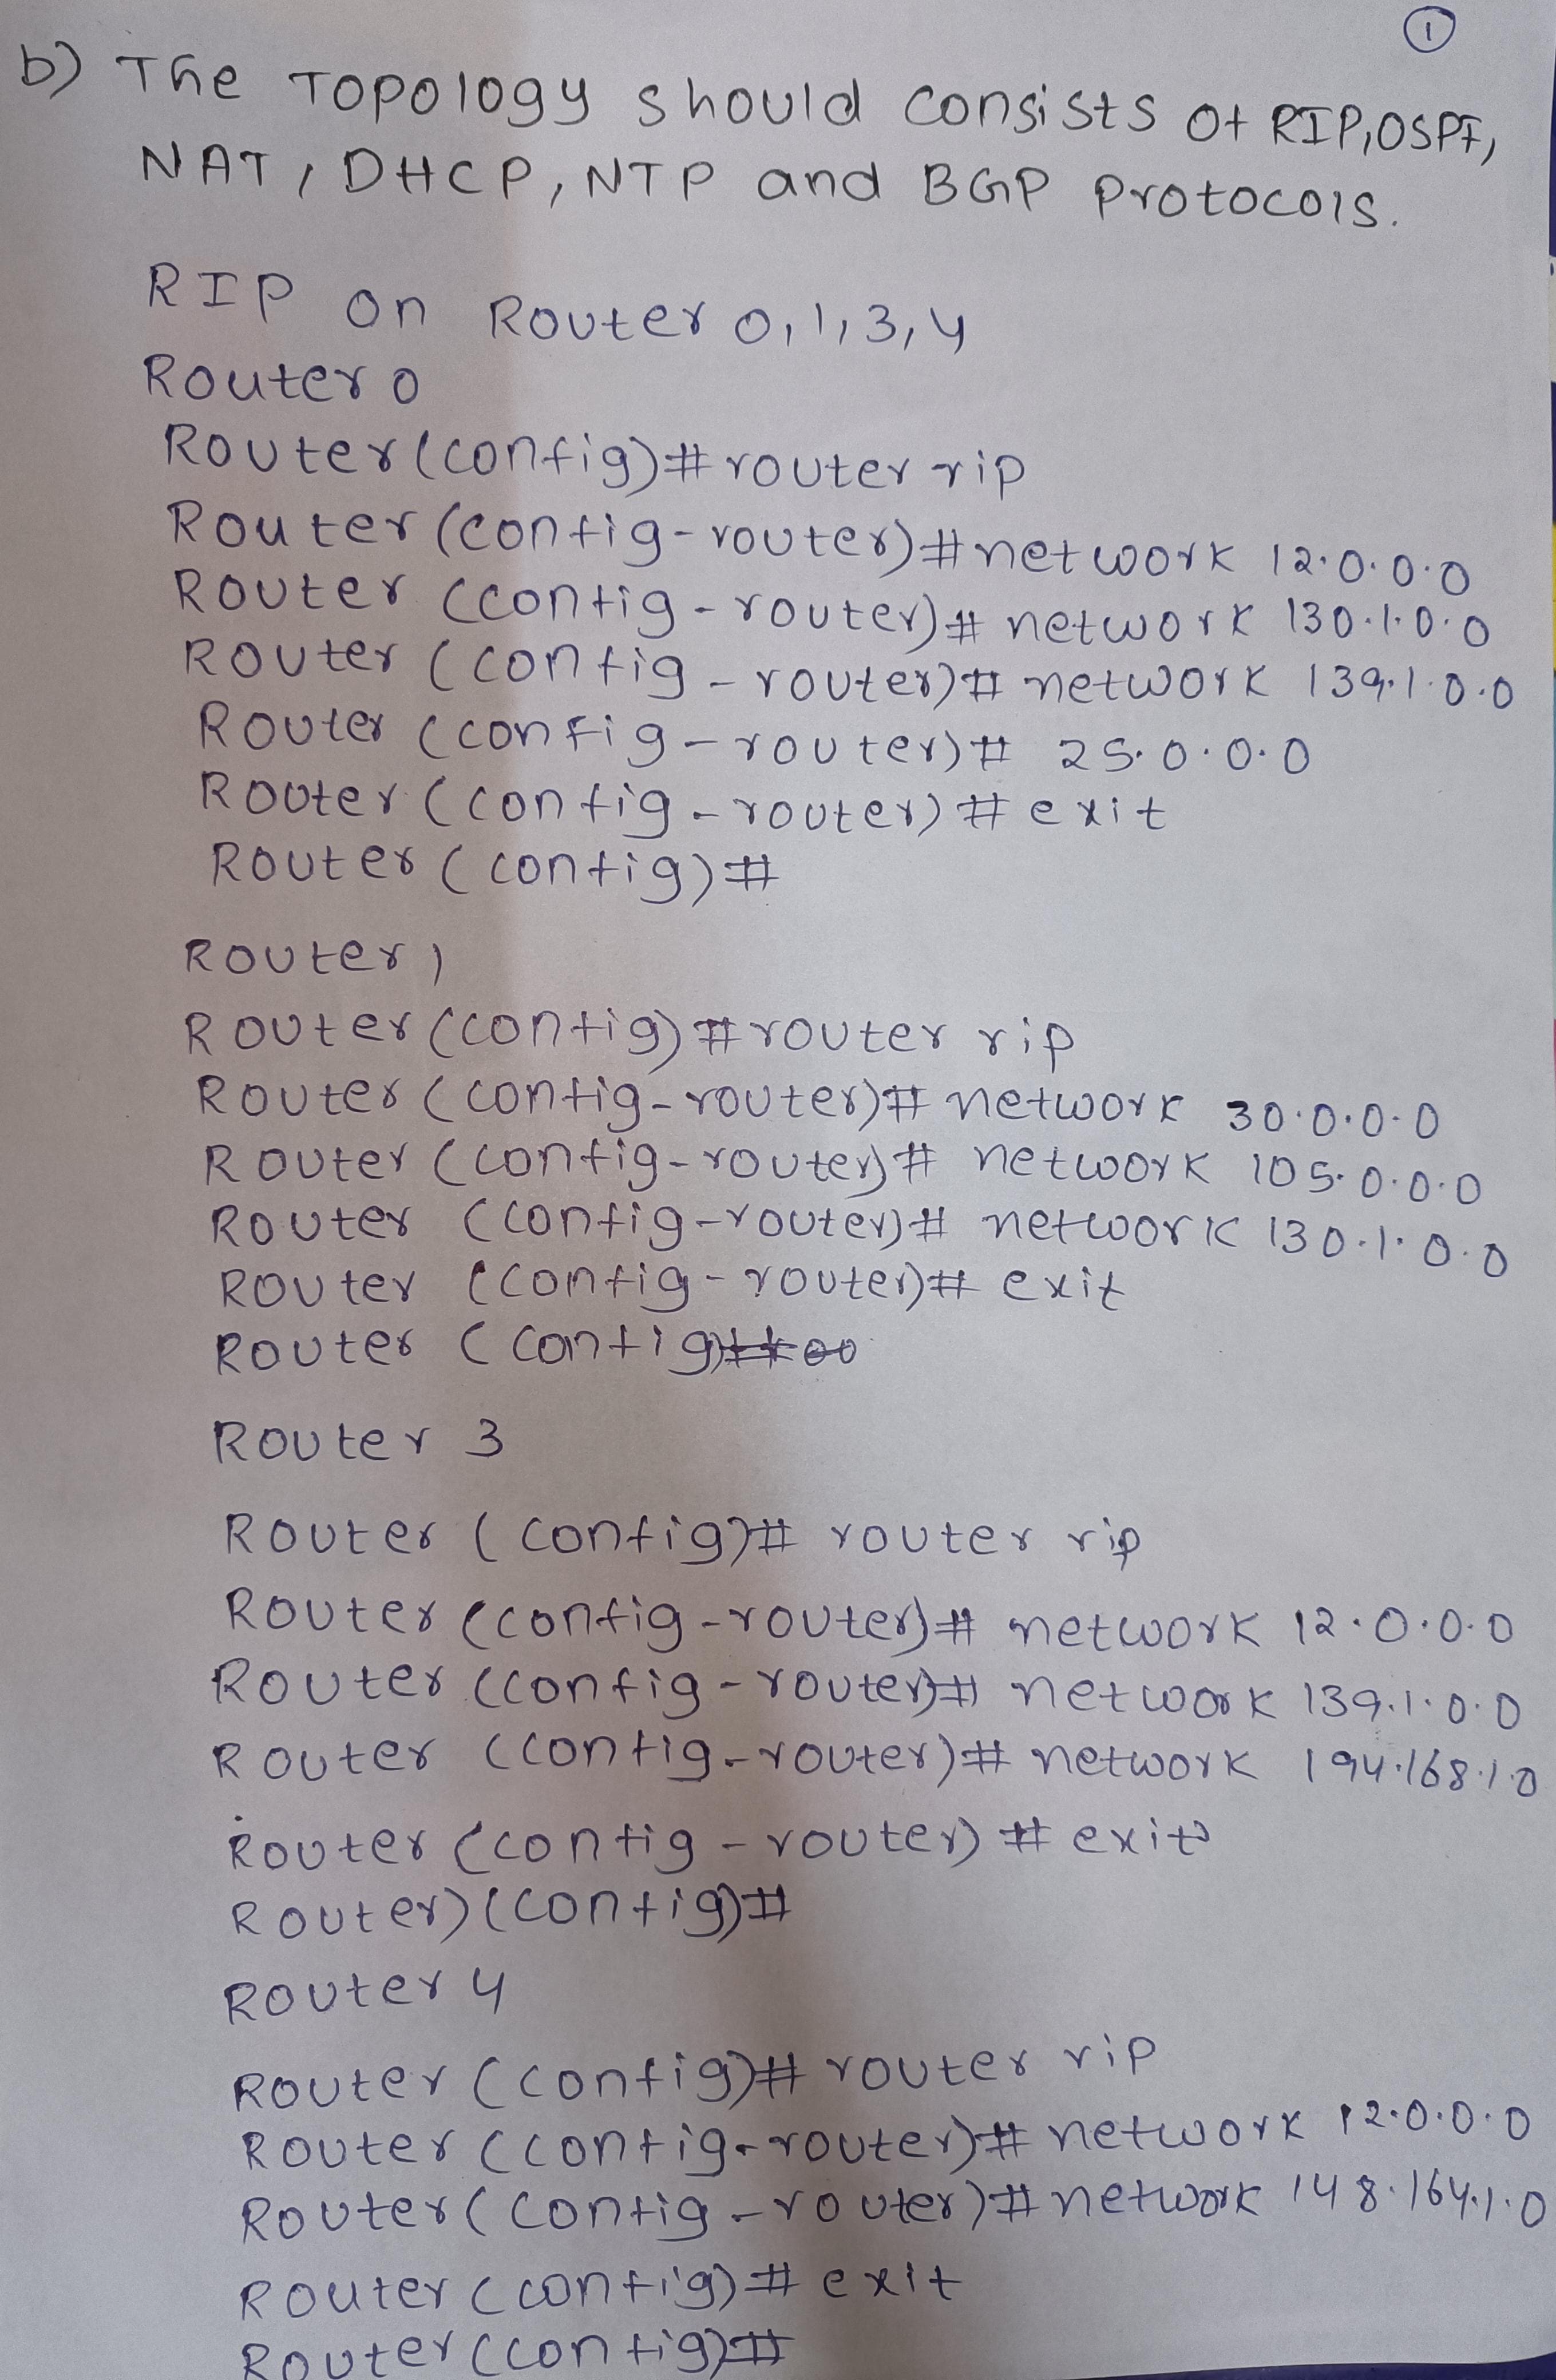 1
b) The Topology should consists of RIP, OSPF,
NAT, DHCP, NTP and BGP Protocols.
RIP on Router 0,1,3,4
Router 0
Router(config)#router rip
Router(config-router)#network 12.0.0.0
Router (config-router)# network 130.1.0.0
Router (config-router)# network 139.1.0.0
Router (config-router)# 25.0.0.0
Router (config-router)# exit
Router (config)#
Router 1
Router(config)#router rip
Router (config-router)# network 30.0.0.0
Router (config-router)# network 105.0.0.0
Router (config-router)# network 130.1.0.0
Router (config-router)# exit
Router (config)#
Router 3
Router (config)# router rip
Router (config-router)# network 12.0.0.0
Router (config-router)# network 139.1.0.0
Router (config-router)# network 194.168.1.0
Router (config-router) # exit
Router)(config)#
Router 4
Router (config)# router rip
Router (config-router)# network 12.0.0.0
Router (config-router)# network 148.164.1.0
Router (config)# exit
Router (config)#